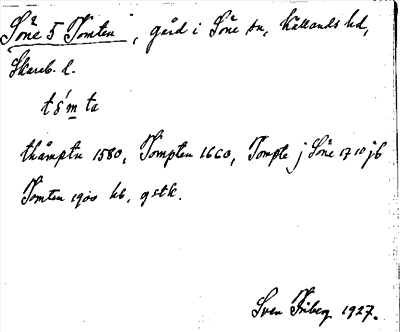 Såne 5 Tomten, gård i Såne sn, Kållands hd,
Skarab. l.
tåmta
thåmptn 1580, Tompten 1660, Tompte j Såne 1710 jb
Tomten 1900 kb, gstk.
Sven Friberg 1927.